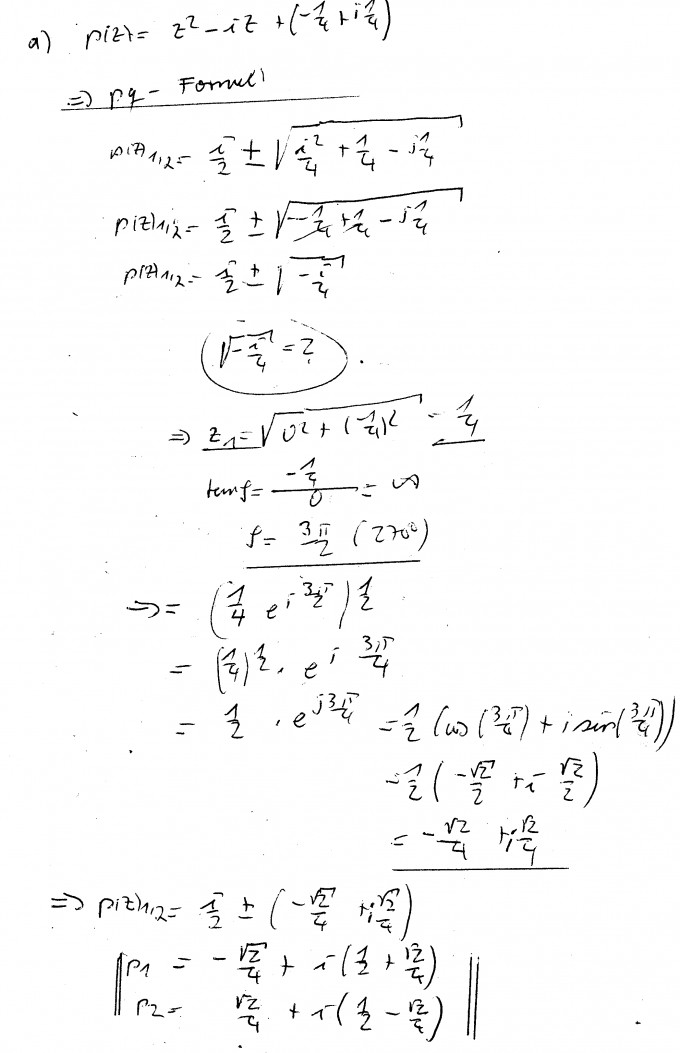 a) p(z) = z² - iz + (-1/4 + i 1/4)
=> pq - Formel
p(z)1,2 = i/2 ± √(i²/4 + 1/4 - i 1/4)
p(z)1,2 = i/2 ± √(-1/4 + 1/4 - i 1/4)
p(z)1,2 = i/2 ± √(-i/4)
√(-i/4) = ?
=> z1 = √(0² + (1/4)²) = 1/4
tan φ = (-1/4)/0 = ∞
φ = 3π/2 (270°)
=> = (1/4 e^(i 3π/2))^(1/2)
= (1/4)^(1/2) · e^(i 3π/4)
= 1/2 · e^(j 3π/4) = 1/2 (cos(3π/4) + i sin(3π/4))
= 1/2 (-√2/2 + i √2/2)
= -√2/4 + i √2/4
=> p(z)1,2 = i/2 ± (-√2/4 + i √2/4)
p1 = -√2/4 + i (1/2 + √2/4)
p2 = √2/4 + i (1/2 - √2/4)